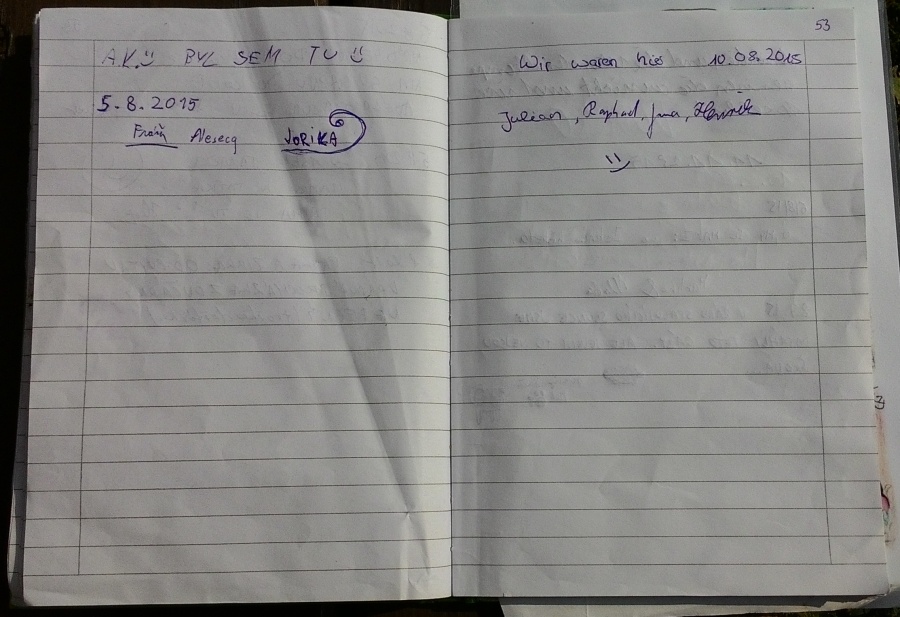 A.K. BYL SEM TU
5.8.2015
JORIKA
53
Wir waren hier 10.08.2015
Julian, Raphael, Jana, Henrik